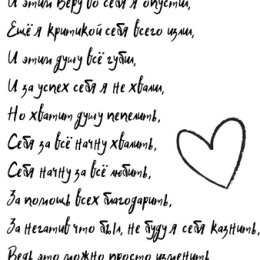 И этим веру во себя я опусти,
Ещё я критикой себя всего изли,
И этим душу всё губи,
И за успех себя я не хвали,
Но хватит душу пепелить,
Себя за всё начну хвалить,
Себя начну за всё любить,
За помощь всех благодарить,
За негатив что был, не буду я себя казнить,
Ведь это можно просто изменить